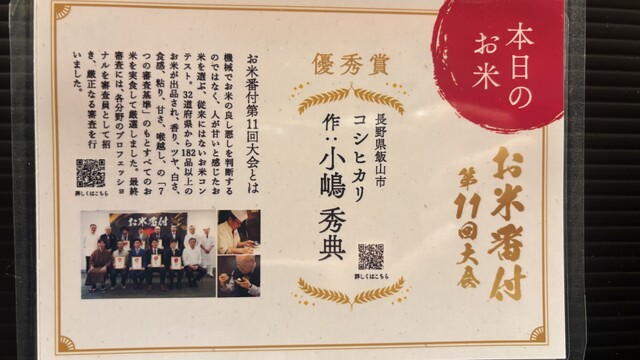 本日の
お米
お米番付
第11回大会
優秀賞
長野県飯山市
コシヒカリ
作:小嶋 秀典
詳しくはこちら
お米番付第11回大会とは
機械でお米の良し悪しを判断する
のではなく、人が甘いと感じたお
米を選ぶ、従来にはないお米コン
テスト。32道府県から182品以上の
お米が出品され、香り、ツヤ、白さ、
食感、粘り、甘さ、喉越し、の「7
つの審査基準」のもとすべてのお
米を実食して厳選しました。最終
審査には、各分野のプロフェッショ
ナルを審査員として招
き、厳正なる審査を行
いました。
詳しくはこちら
お米番付